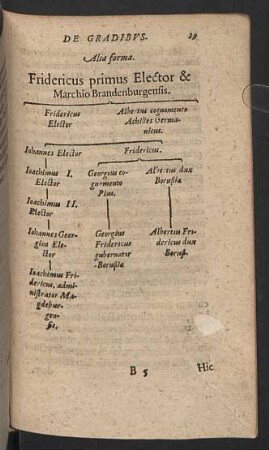 DE GRADIBVS.
Alia forma.
Fridericus primus Elector &
Marchio Brandenburgensis.
Fridericus
Elector
Albertus cognomento
Achilles Germa-
nicus.
Iohannes Elector
Fridericus.
Ioachimus I.
Elector
Georgius co-
gnomento
Pius.
Albertus dux
Borussiæ
Ioachimus II.
Elector
Iohannes Geor-
gius Ele-
ctor
Georgius
Fridericus
gubernator
Borussiæ
Albertus Fri-
dericus dux
Boruss.
Ioachimus Fri-
dericus, admi-
nistrator Ma-
gdebur-
gen-
sis.
B 5
Hic